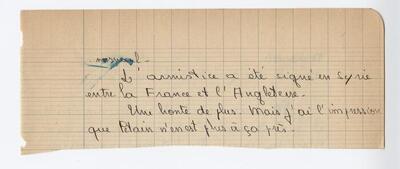 L'armistice a été signé en Syrie
entre la France et l'Angleterre.
Une honte de plus. Mais j'ai l'impression
que Pétain n'en est plus à ça près.